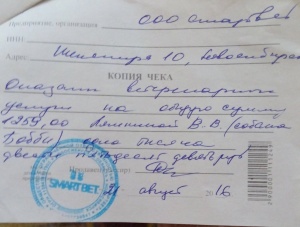 Предприятие, организация ООО СмартВет
ИНН
Адрес 10, Новосибирск
КОПИЯ ЧЕКА
Оказаны ветеринарные
услуги на общую сумму
1259,00 В.В. (собака
Бобби) одна тысяча
двести пятьдесят девять руб
SMARTВЕТ
21 август 2016